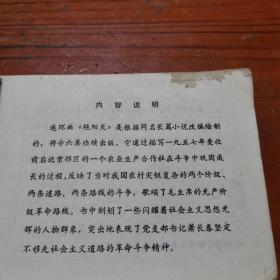 内容说明
连环画《艳阳天》是根据同名长篇小说改编绘制
的,将分六集陆续出版。它通过描写一九五七年麦收
前后北京郊区的一个农业生产合作社在斗争中巩固成
长的过程,反映了当时我国农村尖锐复杂的两个阶级、
两条道路、两条路线的斗争,歌颂了毛主席的无产阶
级革命路线。书中刻划了一些闪耀着社会主义思想光
辉的人物群象,突出地表现了党支部书记萧长春坚定
不移走社会主义道路的革命斗争精神。